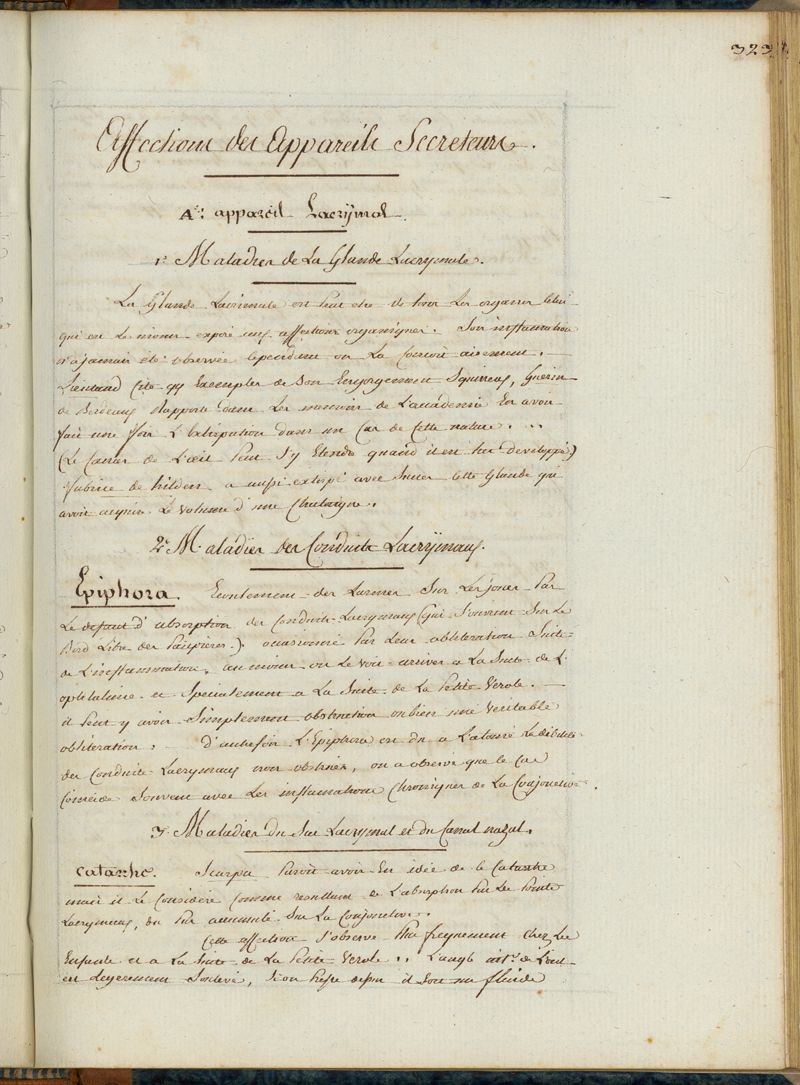 323
Affections des Appareils Secreteurs.
A: appareil Lacrymal.
1° Maladies de La Glande Lacrymale.
La Glande Lacrimale est peut etre de tous Les organes celui
qui est Le moins exposé aux affections organiques. Son inflammation
n'a jamais été observée cependant on La Concoit aisement. —
Lieutaud Cite qq Exemples de Son Engorgement Squirreux, Guerin
de Bordeaux Rapporte dans Les memoires de L'accadémie En avoir
fait une fois L'Extirpation dans un Cas de Cette nature. ...
(Le Cancer de L'œil Peut S'y Etendre quand il est tres developpé)
fabrice de hilden a aussi extirpé avec Succes Cette Glande qui
avoit acquis Le Volume d'une Chataigne.
2° Maladies des Conduits Lacrymaux.
Epiphora. Ecoulement des Larmes Sur Les joues Par
Le defaut d'absorption des Conduits Lacrymaux (qui S'ouvrent Sur Le
Bord Libre des Paupieres). occasionné Par Leur obliteration Suite
de L'inflammation, au moins on Le Voit arriver a La Suite de L'
opthalmie et Specialement a La Suite de La Petite Verole. —
il Peut y avoir Simplement obstruction ou bien une Veritable
obliteration. d'autrefois L'Epiphora est du a L'atonie
des Conduits Lacrymaux non obstrués, on a observé que Le Cas
Coincide Souvent avec Les inflammations Chroniques de La Conjonctive.
3° Maladies du Sac Lacrymal et du Canal nazal.
Catarrhe. Scarpa Paroit avoir Eu idée de Ce Catarrhe
mais il Le Considere Comme resultant de L'absorption Par Les Points
Lacrymaux, du Pus accumulé Sur La Conjonctive.
Cette affection S'observe Plus frequement chez Les
Enfants et a La Suite de La Petite Verole.. L'angle int.e de L'œil
est Legerement Soulevé, Si on Presse dessus il Sort un fluide